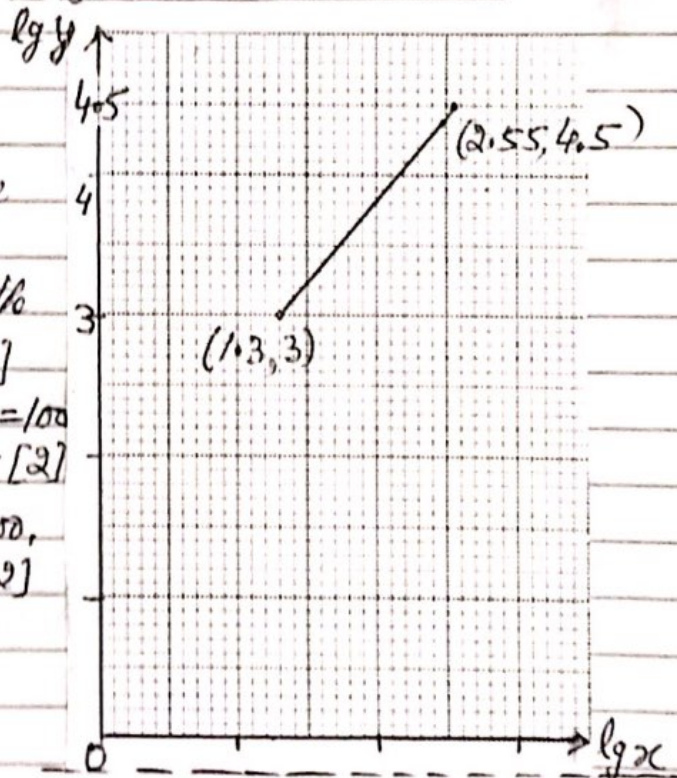 lg y
4.5
(2.55, 4.5)
4
3
(1.3, 3)
]
=100
[2]
50,
2]
0
lg x